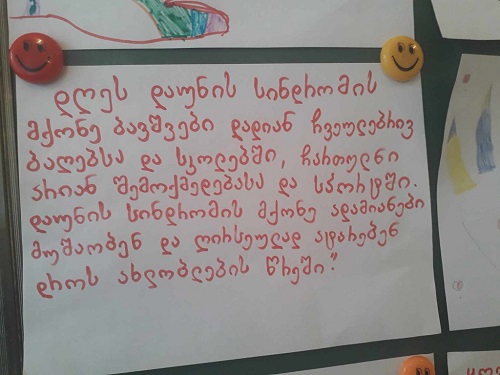 დღეს დაუნის სინდრომის
მქონე ბავშვები დადიან ჩვეულებრივ
ბაღებსა და სკოლებში, ჩართულნი
არიან შემოქმედებასა და სპორტში.
დაუნის სინდრომის მქონე ადამიანები
მუშაობენ და ღირსეულად ატარებენ
დროს ახლობლების წრეში."